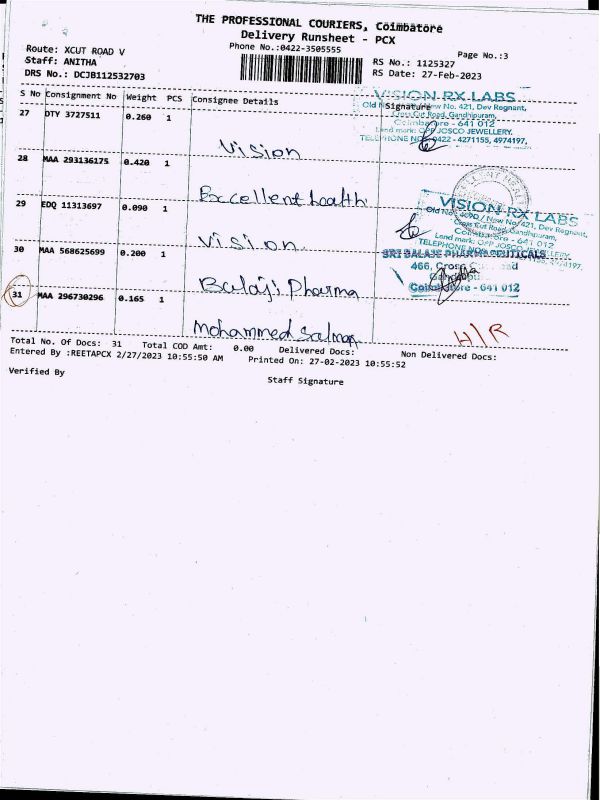 THE PROFESSIONAL COURIERS, Coimbatore
Delivery Runsheet - PCX
Phone No.:0422-3505555
Page No.:3
Route: XCUT ROAD V
Staff: ANITHA
DRS No.: DCJB112532703
RS No.: 1125327
RS Date: 27-Feb-2023
S No Consignment No Weight PCS Consignee Details Signature
27 DTY 3727511 0.260 1
Vision
VISION-RX LABS
Old No. New No. 421, Dev Regnant,
Cross Cut Road, Gandhipuram,
Coimbatore - 641 012
Land mark: OPP JOSCO JEWELLERY.
TELEPHONE NO: 0422 - 4271155, 4974197.
28 MAA 293136175 0.420 1
Excellent health
29 EDQ 11313697 0.090 1
Vision
VISION-RX LABS
Old No. 409D / New No. 421, Dev Regnant,
Cross Cut Road, Gandhipuram,
Coimbatore - 641 012
Land mark: OPP JOSCO JEWELLERY.
TELEPHONE NO: 4974197.
30 MAA 568625699 0.200 1
Balaji Pharma
SRI BALAJI PHARMACEUTICALS
466, Cross
Coimbatore - 641 012
31 MAA 296730296 0.165 1
Mohammed Salman
H/R
Total No. Of Docs: 31 Total COD Amt: 0.00 Delivered Docs: Non Delivered Docs:
Entered By :REETAPCX 2/27/2023 10:55:50 AM Printed On: 27-02-2023 10:55:52
Verified By
Staff Signature